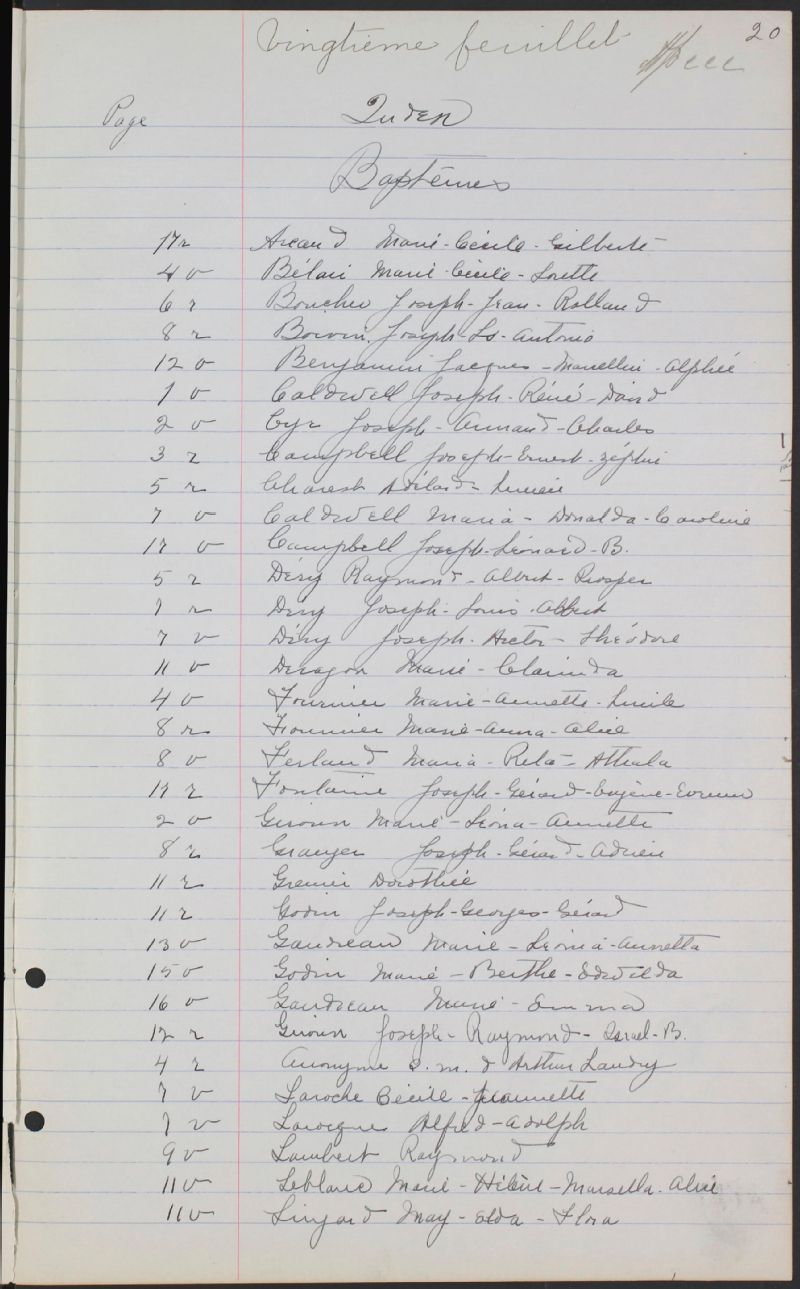 20
vingtième feuillet
Page Index
Baptêmes
17 r Arcand Marie-Cécile-Gilberte
4 v Bélair Marie-Cécile-Lorette
6 r Boucher Joseph-Jean-Rolland
8 r Boivin Joseph-Ls-Antonio
12 v Benjamin Jacques-Marcellin-Alphée
1 v Caldwell Joseph-Réné-David
2 v Cyr Joseph-Armand-Charles
3 r Campbell Joseph-Ernest-Zéphir
5 r Charest Adélard-Lucien
7 v Caldwell Maria-Donalda-Caroline
17 v Campbell Joseph-Léonard-B.
5 r Déry Raymond-Albert-Prosper
7 r Déry Joseph-Louis-Albert
7 v Déry Joseph-Hector-Théodore
11 v Deragon Marie-Clarinda
4 v Fournier Marie-Annette-Lucile
8 r Fournier Marie-Anna-Alice
8 v Ferland Maria-Rita-Athala
17 r Fontaine Joseph-Gérard-Eugène
2 v Girouin Marie-Léona-Annette
8 r Granger Joseph-Gérard-Adrien
11 r Grenier Dorothée
11 r Godin Joseph-Georges-Gérard
13 v Gaudreau Marie-Léona-Annetta
15 v Godin Marie-Berthe-Edwilda
16 v Gaudreau Marie-Emma
17 r Girouin Joseph-Raymond-Israel-B.
4 r Anonyme e. m. d Arthur Landry
7 v Laroche Cécile-Jeannette
7 v Larocque Alfred-Adolph
9 v Lambert Raymond
11 v Leblanc Marie-Hélène-Marsella-Alice
11 v Lingard May-Elda-Flora